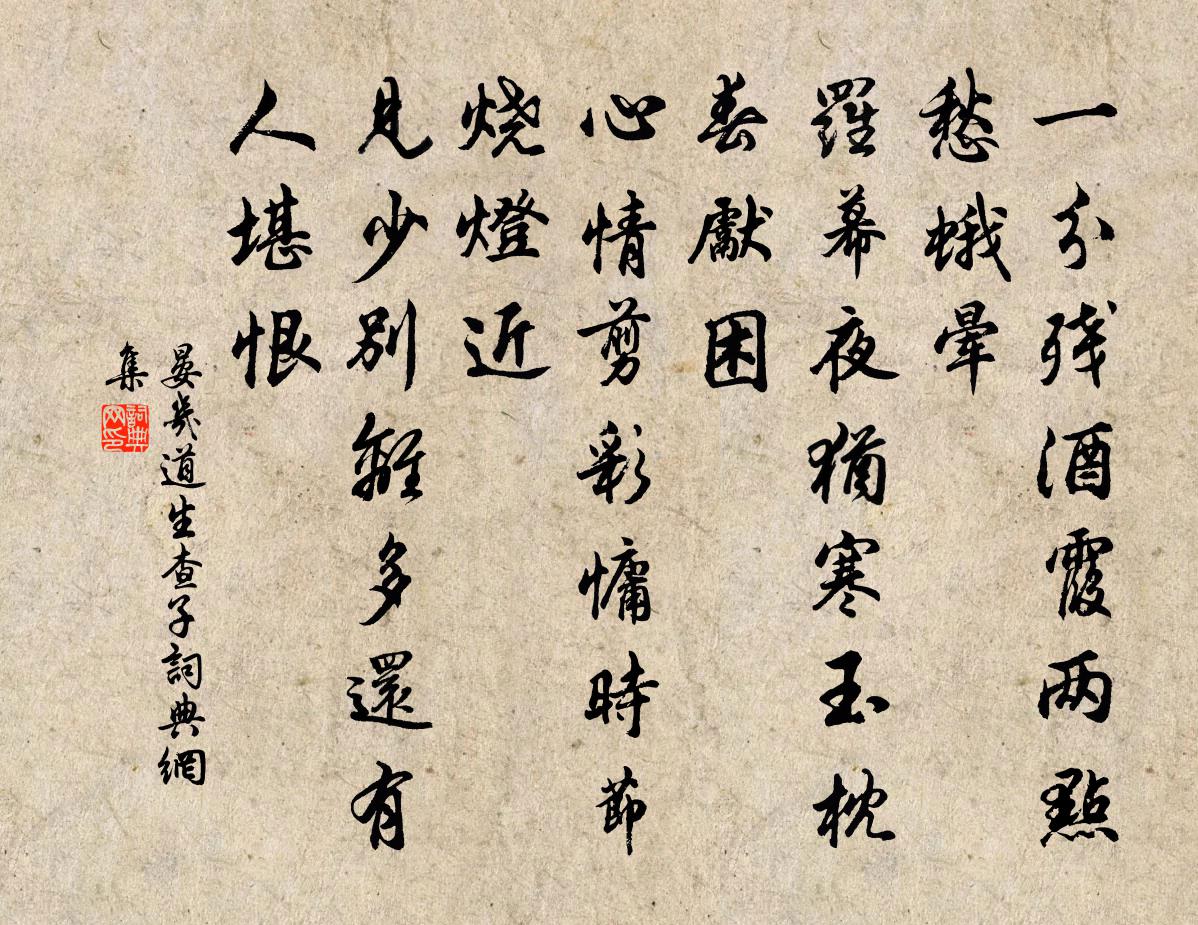 一分残酒霞两點
愁蛾暈
羅幕夜猶寒玉枕
春獻困
心情剪彩慵時節
烧燈近
見少别離多還有
人堪恨
晏幾道生查子詞典網
集
詞典网印